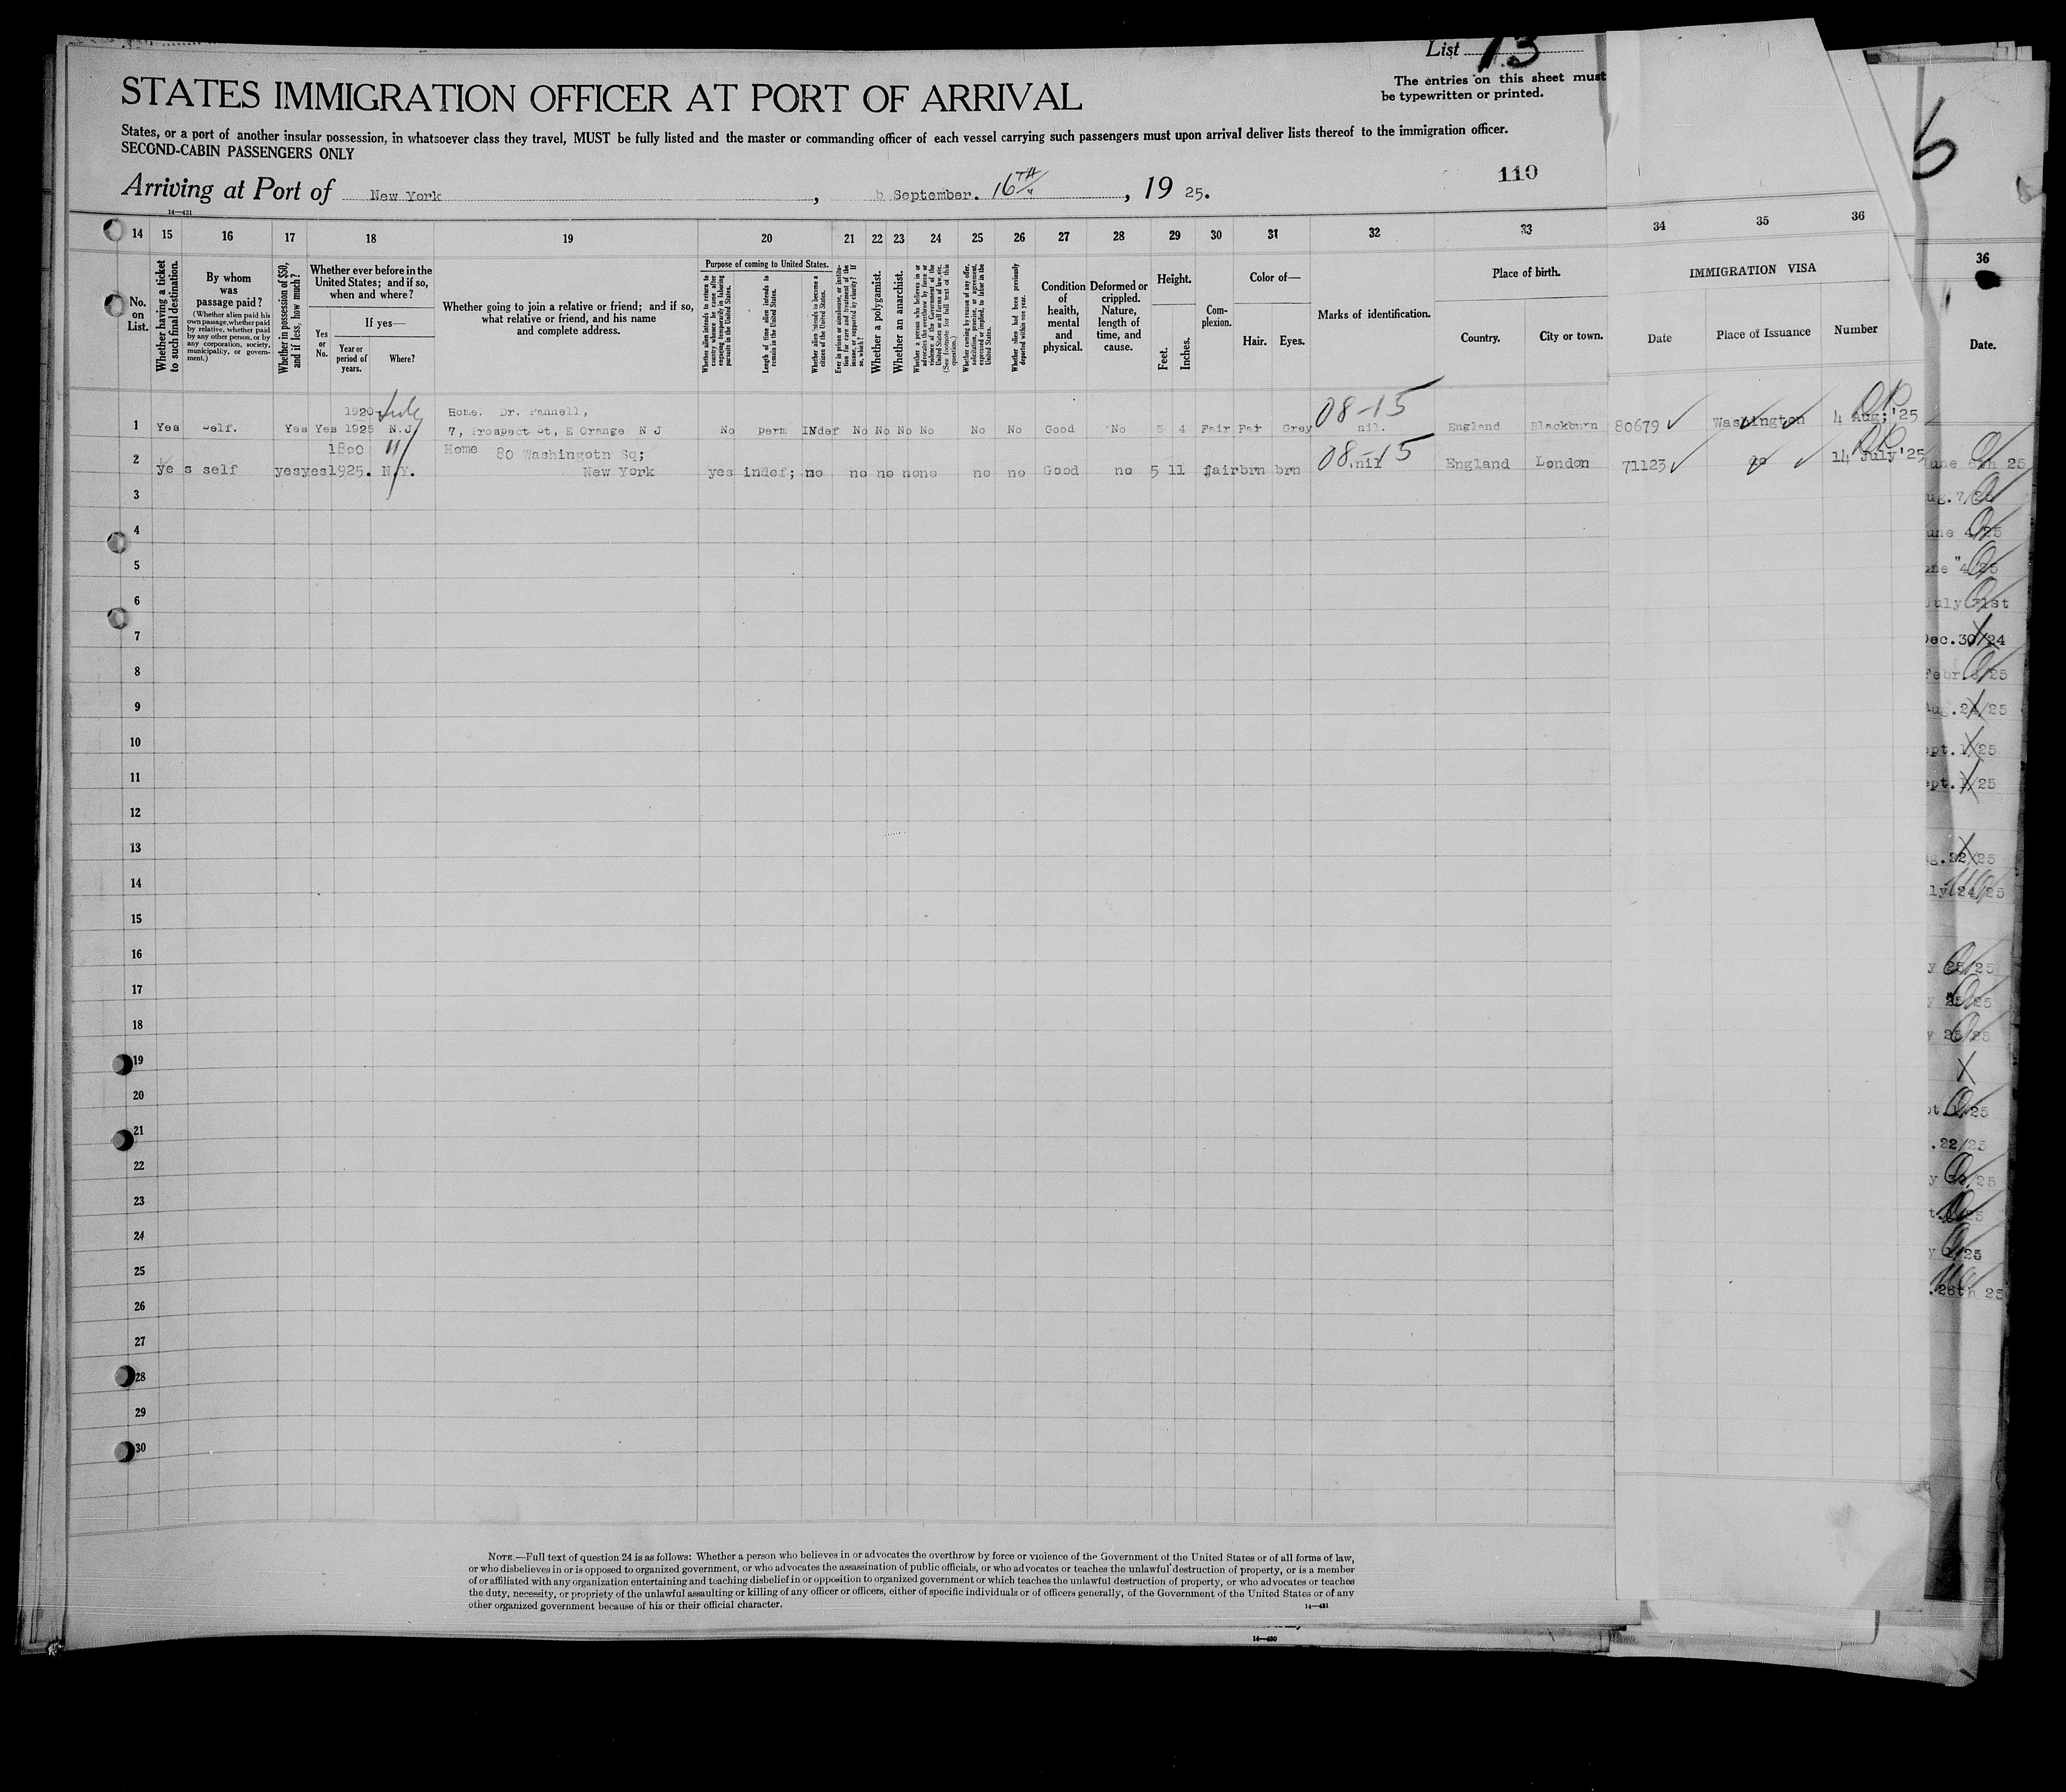 List 13
The entries on this sheet must
be typewritten or printed.
STATES IMMIGRATION OFFICER AT PORT OF ARRIVAL
States, or a port of another insular possession, in whatsoever class they travel, MUST be fully listed and the master or commanding officer of each vessel carrying such passengers must upon arrival deliver lists thereof to the immigration officer.
SECOND-CABIN PASSENGERS ONLY
110
6
Arriving at Port of New York, September. 16TH, 19 25.
14—431
14 15 16 17 18 19 20 21 22 23 24 25 26 27 28 29 30 31 32 33 34 35 36
36
No. on List.
Whether having a ticket to such final destination.
By whom was passage paid?
(Whether alien paid his own passage, whether paid by relative, whether paid by any other person, or by any corporation, society, municipality, or government.)
Whether in possession of $50, and if less, how much?
Whether ever before in the United States; and if so, when and where?
Yes or No.
If yes—
Year or period of years.
Where?
Whether going to join a relative or friend; and if so, what relative or friend, and his name and complete address.
Purpose of coming to United States.
Whether alien intends to return to country whence he came after engaging temporarily in laboring pursuits in the United States.
Length of time alien intends to remain in the United States.
Whether alien intends to become a citizen of the United States.
Ever in prison or almshouse, or institution for care and treatment of the insane, or supported by charity? If so, which?
Whether a polygamist.
Whether an anarchist.
Whether a person who believes in or advocates the overthrow by force or violence of the Government of the United States or all forms of law, etc. (See footnote for full text of this question.)
Whether coming by reason of any offer, solicitation, promise, or agreement, expressed or implied, to labor in the United States.
Whether alien had been previously deported within one year.
Condition of health, mental and physical.
Deformed or crippled. Nature, length of time, and cause.
Height.
Feet. Inches.
Complexion.
Color of—
Hair. Eyes.
Marks of identification.
Place of birth.
Country. City or town.
IMMIGRATION VISA
Date Place of Issuance Number
Date.
1920 July Home. Dr. Pannell, 08-15 OK
1 Yes self. Yes Yes 1925 N.J. 7, Prospect St, E Orange N J No perm INdef No No No No No No Good No 5 4 Fair Fair Grey nil. England Blackburn 80679 Washington 4 Aug;'25
1800 11 Home 80 Washingotn Sq; 08-15 OK
2 ye s self yes yes 1925. N.Y. New York yes indef; no no no none no no Good no 5 11 fair brn brn nil England London 71123 do 14 July'25
3
4
5
6
7
8
9
10
11
12
13
14
15
16
17
18
19
20
21
22
23
24
25
26
27
28
29
30
July 31st
Dec.30/24
.22/25
NOTE.—Full text of question 24 is as follows: Whether a person who believes in or advocates the overthrow by force or violence of the Government of the United States or of all forms of law,
or who disbelieves in or is opposed to organized government, or who advocates the assassination of public officials, or who advocates or teaches the unlawful destruction of property, or is a member
of or affiliated with any organization entertaining and teaching disbelief in or opposition to organized government or which teaches the unlawful destruction of property, or who advocates or teaches
the duty, necessity, or propriety of the unlawful assaulting or killing of any officer or officers, either of specific individuals or of officers generally, of the Government of the United States or of any
other organized government because of his or their official character.
14—431
14—430